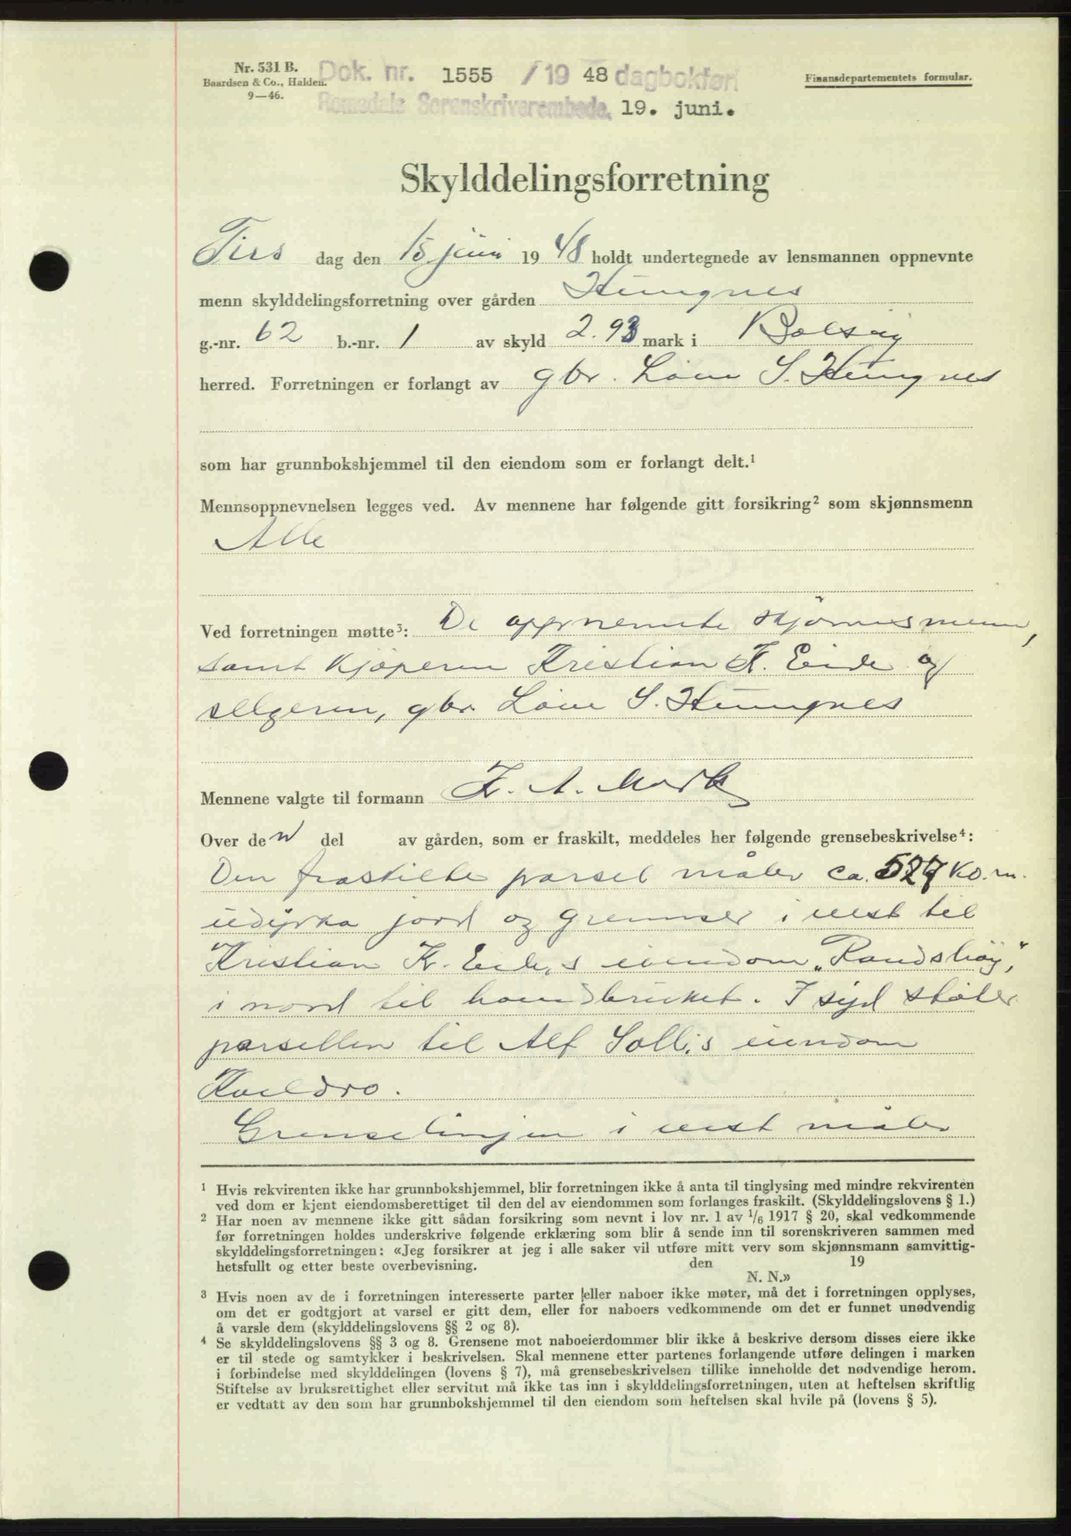 Nr. 531 B.
Baardsen & Co., Halden.
9—46.
Dok. nr. 1555 / 19 48 dagbokført
Romsdals Sorenskriverembede, 19. juni.
Finansdepartementets formular.
Skylddelingsforretning
Tirs dag den 15 juni 19 48 holdt undertegnede av lensmannen oppnevnte
menn skylddelingsforretning over gården
g.-nr. 62 b.-nr. 1 av skyld 2.93 mark i Bolsøy
herred. Forretningen er forlangt av gbr.
som har grunnbokshjemmel til den eiendom som er forlangt delt.¹
Mennsoppnevnelsen legges ved. Av mennene har følgende gitt forsikring² som skjønnsmenn
Alle
Ved forretningen møtte³: De oppnemnte skjønnsmenn,
samt kjøperen Kristian K. Eide og
selgeren, gbr.
Mennene valgte til formann K. A. Mork
Over de n del av gården, som er fraskilt, meddeles her følgende grensebeskrivelse⁴:
Den fraskilte parsel måler ca. 527 kv.m.
udyrka jord og grenser i vest til
Kristian K. Eide,s eiendom „Randshøy",
i nord til hovedbruket. I syd støter
parsellen til Alf Solli,s eiendom
Kveldro.
Grenselinjen i vest måler
¹ Hvis rekvirenten ikke har grunnbokshjemmel, blir forretningen ikke å anta til tinglysing med mindre rekvirenten
ved dom er kjent eiendomsberettiget til den del av eiendommen som forlanges fraskilt. (Skylddelingslovens § 1.)
² Har noen av mennene ikke gitt sådan forsikring som nevnt i lov nr. 1 av 1/6 1917 § 20, skal vedkommende
før forretningen holdes underskrive følgende erklæring som blir å sende inn til sorenskriveren sammen med
skylddelingsforretningen: «Jeg forsikrer at jeg i alle saker vil utføre mitt verv som skjønnsmann samvittig-
hetsfullt og etter beste overbevisning. den 19
N. N.»
³ Hvis noen av de i forretningen interesserte parter eller naboer ikke møter, må det i forretningen opplyses,
om det er godtgjort at varsel er gitt dem, eller for naboers vedkommende om det er funnet unødvendig
å varsle dem (skylddelingslovens §§ 2 og 8).
⁴ Se skylddelingslovens §§ 3 og 8. Grensene mot naboeierdommer blir ikke å beskrive dersom disses eiere ikke
er til stede og samtykker i beskrivelsen. Skal mennene etter partenes forlangende utføre delingen i marken
i forbindelse med skylddelingen (lovens § 7), må grensebeskrivelsen tillike inneholde det nødvendige herom.
Stiftelse av bruksrettighet eller servitut må ikke tas inn i skylddelingsforretningen, uten at heftelsen skriftlig
er vedtatt av den som har grunnbokshjemmel til den eiendom som heftelsen skal hvile på (lovens § 5).